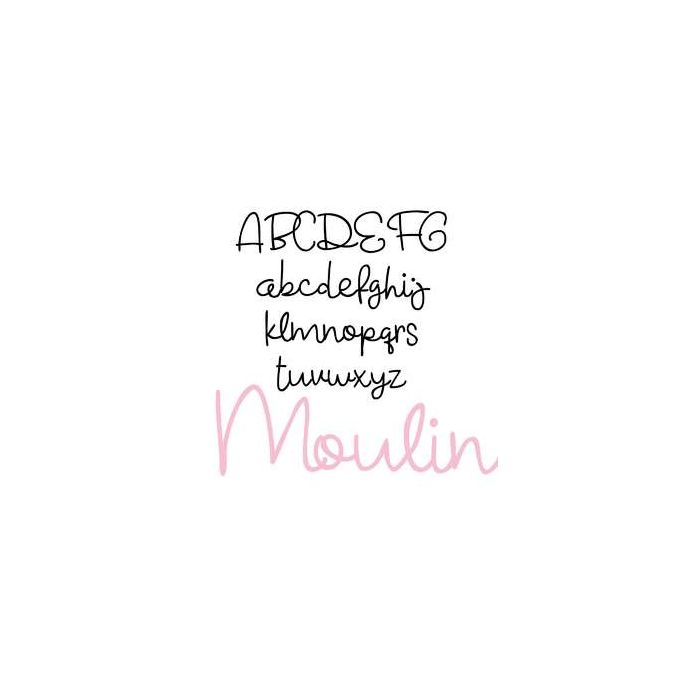 ABCDEFG
abcdefghij
klmnopqrs
tuvwxyz
Moulin